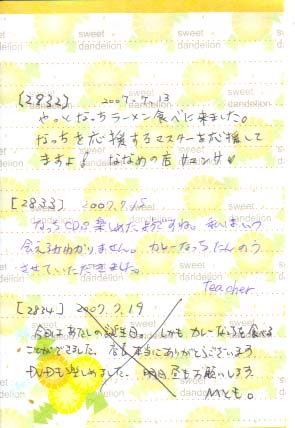 sweet dandelion sweet dandelion
[2832] 2007.7.13
やっとなっちラーメン食べに来ました。
なっちを応援するマスターを応援して
ますよ♪ ななめの店
[2833] 2007.7.15
なっちCD楽しめたようですね。私はいつ
会えるかわかりません。カレーなっちたんのう
させていただきました。
teacher
[2834] 2007.7.19
今日はあたしの誕生日。しかもカレーなっちも食べる
ことができました。店長本当にありがとうございます。
DVDも楽しめました。明日堂もお願いします。
Mとも。